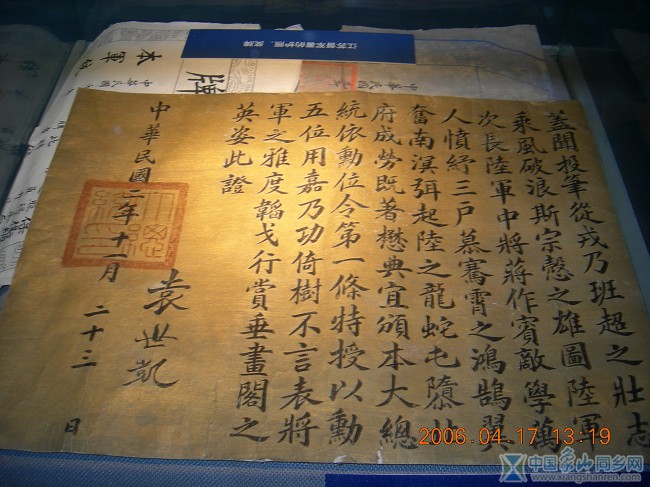 江苏督军署的护照、奖牌
本軍
牌
蓋聞投筆從戎乃班超之壯志
乘風破浪斯宗慤之雄圖陸軍
次長陸軍中將蔣作賓敵學萬
人憤紓三戶慕騫霄之鴻鵠翼
奮南溟弭起陸之龍蛇屯隳
府成勞既著懋典宜頒本大總
統依勳位令第一條特授以勳
五位用嘉乃功倚樹不言表將
軍之雅度韜戈行賞垂畫閣之
英姿此證
中華民國二年十一月二十三日
袁世凱
2006.04.17 13:19
中国象山同乡网
www.xiangshanren.com